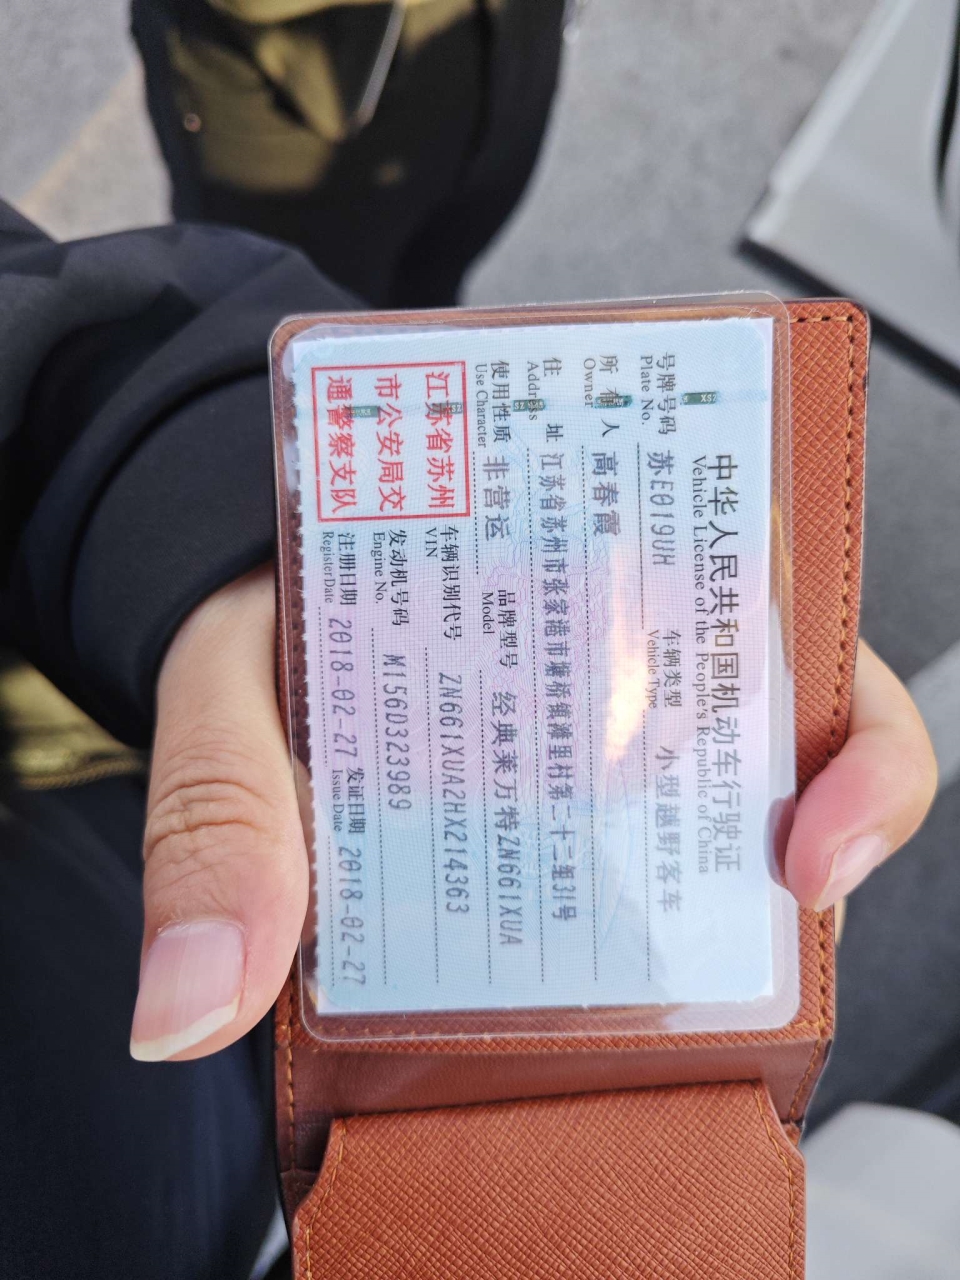 中华人民共和国机动车行驶证
Vehicle License of the People's Republic of China
号牌号码 苏E019UH 车辆类型 小型越野客车
Plate No. Vehicle Type
所有人 高春霞
Owner
住址 江苏省苏州市张家港市塘桥镇滩里村第二十二组31号
Address
使用性质 非营运 品牌型号 经典莱万特ZN661XUA
Use Character Model
江苏省苏州
市公安局交
通警察支队
车辆识别代号 ZN661XUA2HX214363
VIN
发动机号码 M156D323989
Engine No.
注册日期 2018-02-27 发证日期 2018-02-27
Register Date Issue Date